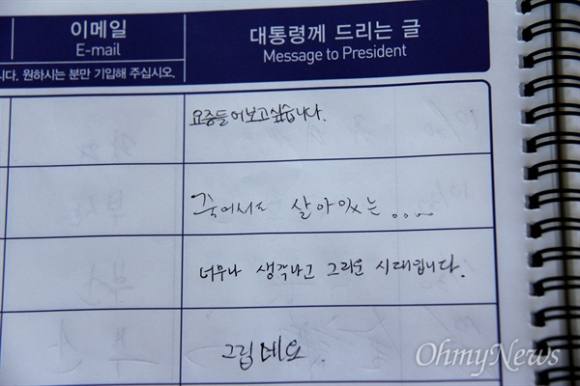 이메일
E-mail
대통령께 드리는 글
Message to President
니다. 원하시는 분만 기입해 주십시오.
요즘들어보고싶습니다.
죽어서도 살아있는....
너무나 생각나고 그리운 시대입니다.
그립네요.
OhmyNews